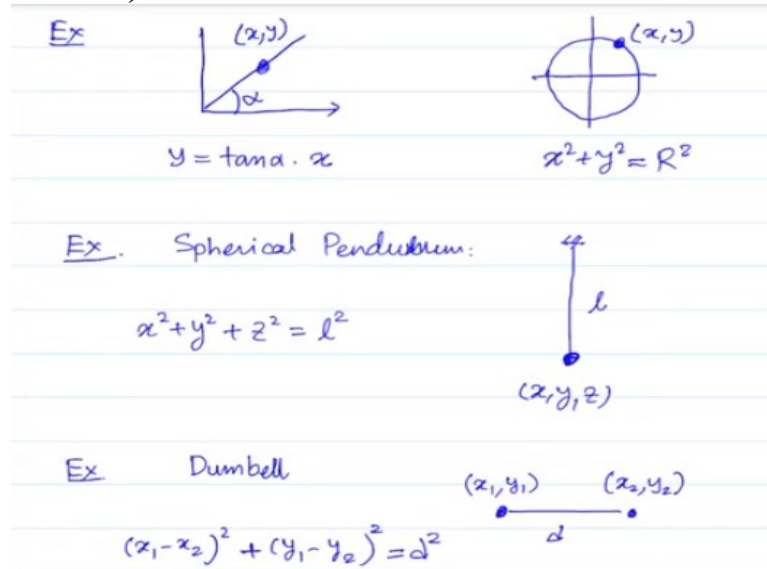 Ex (x,y) (x,y)
α
y = tanα . x x²+y²= R²
Ex. Spherical Pendulum:
l
x²+y²+z² = l²
(x,y,z)
Ex. Dumbell
(x₁,y₁) (x₂,y₂)
d
(x₁-x₂)² + (y₁-y₂)² = d²